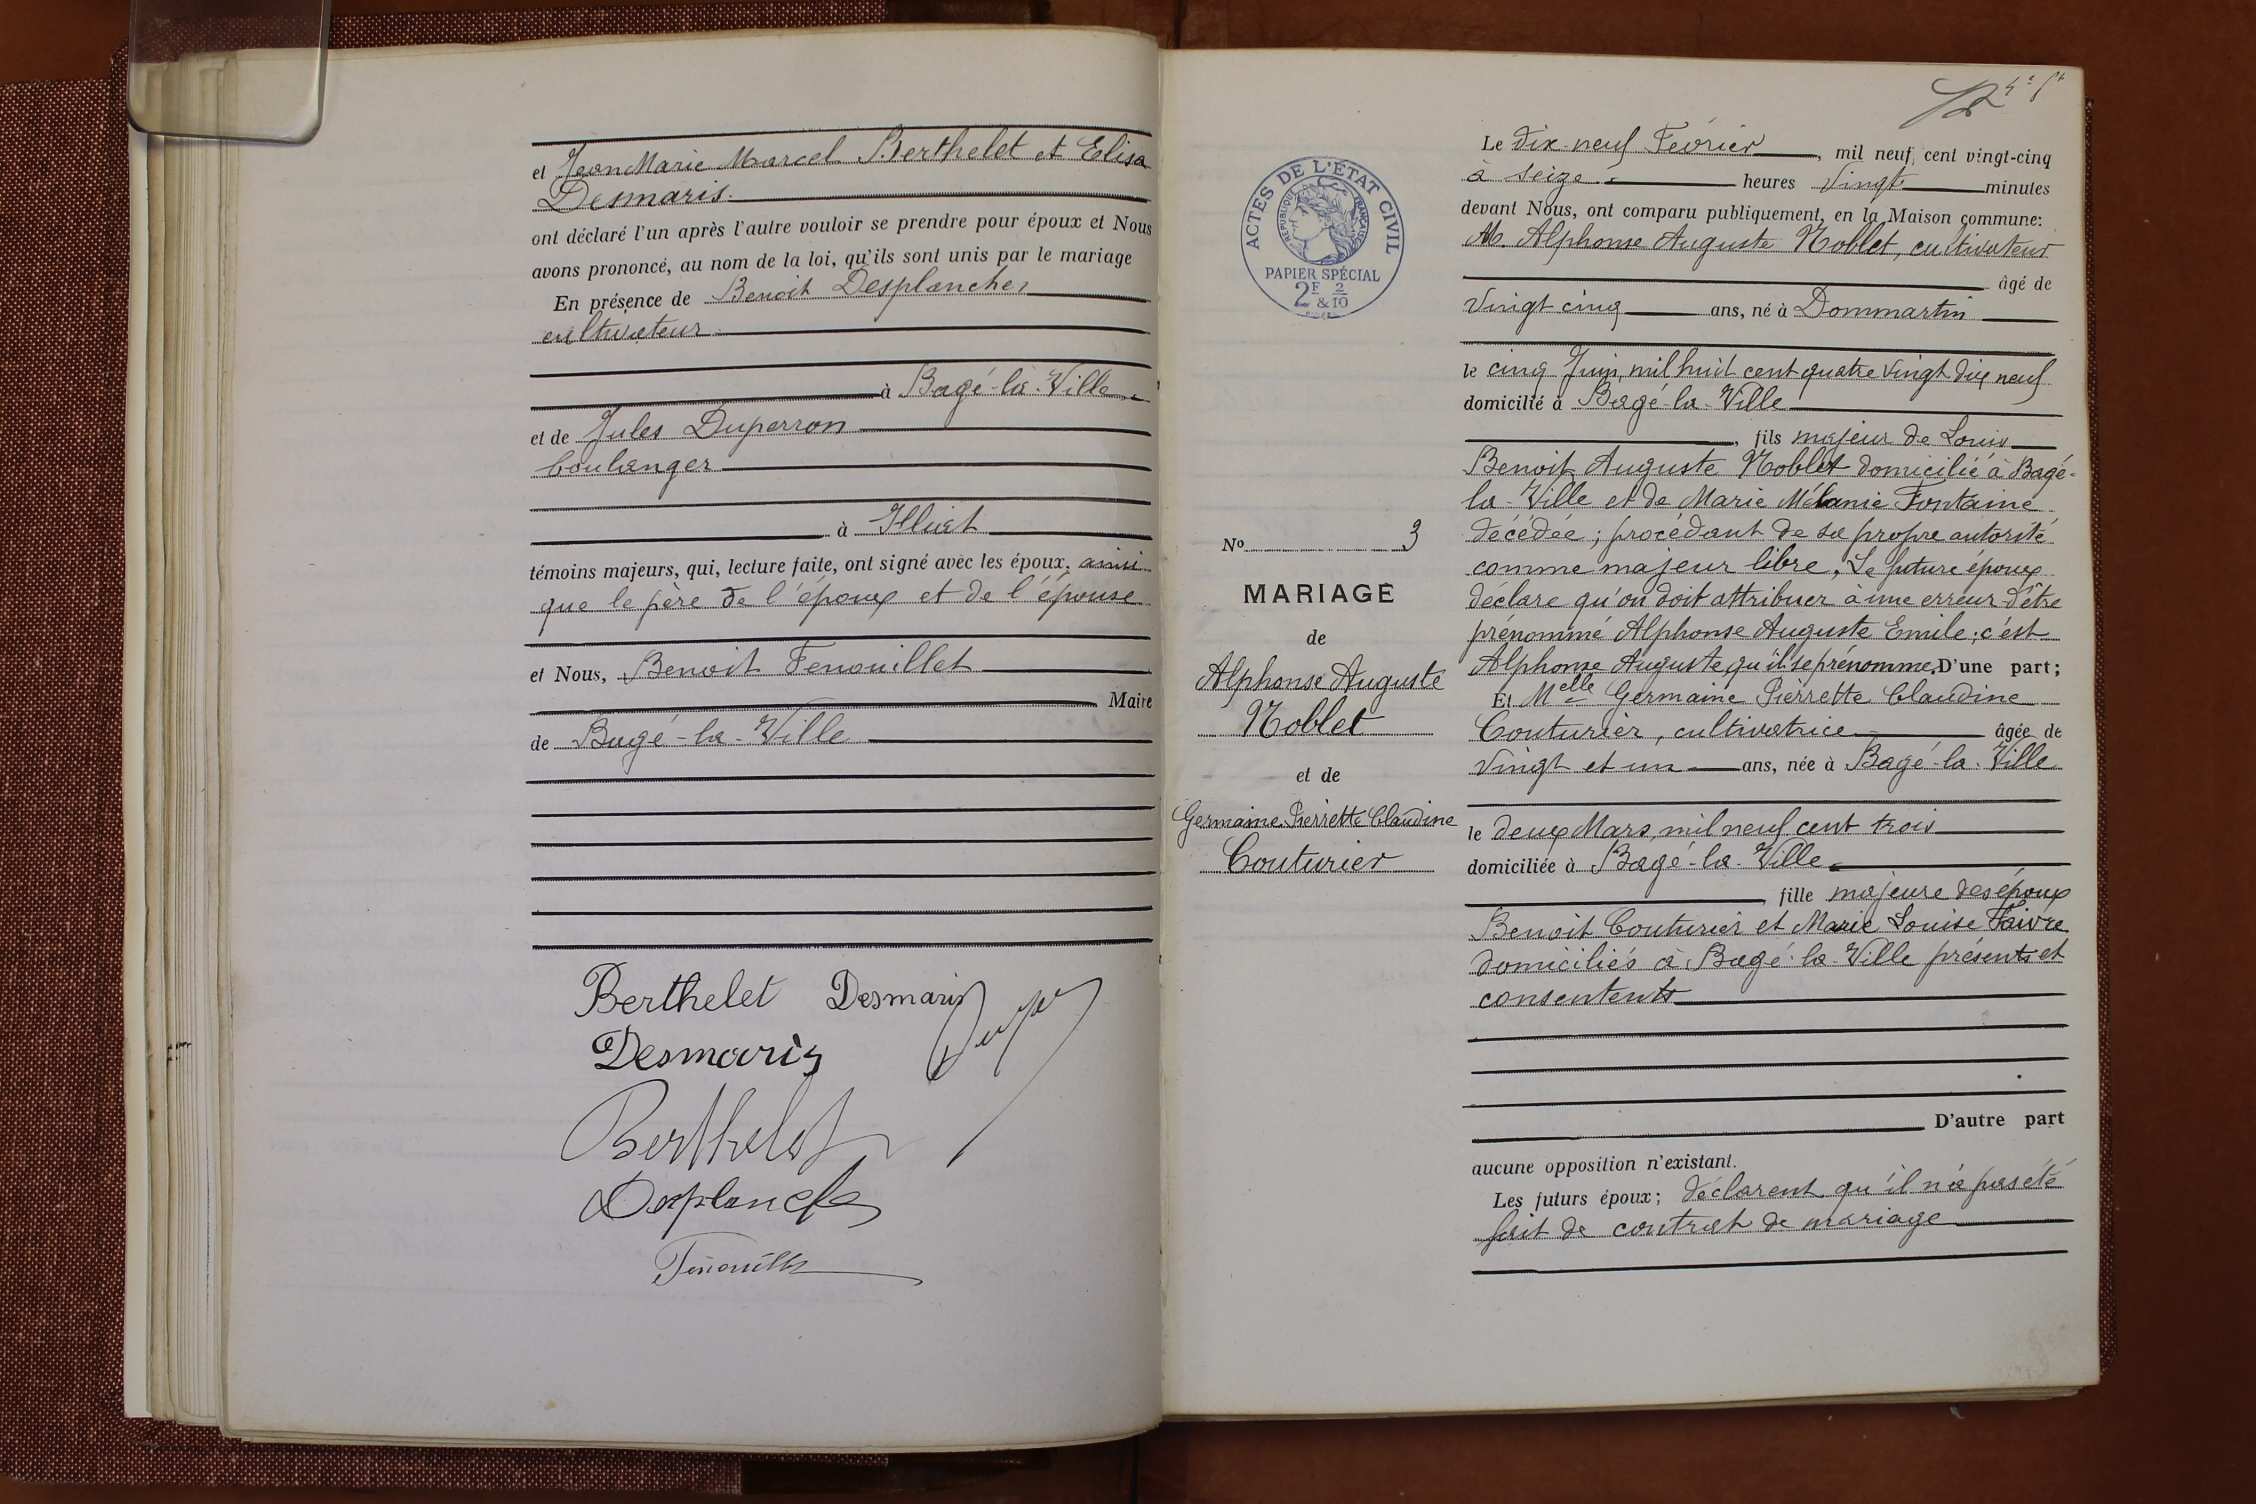 et Jean Marie Marcel Berthelet et Elisa
Desmaris.
ont déclaré l'un après l'autre vouloir se prendre pour époux et Nous
avons prononcé, au nom de la loi, qu'ils sont unis par le mariage
En présence de Benoit Desplanches
cultivateur
à Bagé-la-Ville
et de Jules Duperron
boulanger
à Illiat
témoins majeurs, qui, lecture faite, ont signé avec les époux, ainsi
que le père de l'époux et de l'épouse
et Nous, Benoit Fenouillet
Maire
de Bagé-la-Ville
Berthelet Desmaris
Desmaris
Berthelet
Desplanches
Fenouillet
ACTES DE L'ÉTAT CIVIL
RÉPUBLIQUE FRANÇAISE
PAPIER SPÉCIAL
2F & 2/10
No 3
MARIAGE
de
Alphonse Auguste
Noblet
et de
Germaine Pierrette Claudine
Couturier
Le dix-neuf Février, mil neuf cent vingt-cinq
à seize heures vingt minutes
devant Nous, ont comparu publiquement, en la Maison commune:
M. Alphonse Auguste Noblet, cultivateur
âgé de
vingt cinq ans, né à Dommartin
le cinq Juin, mil huit cent quatre vingt dix neuf
domicilié à Bagé-la-Ville
, fils majeur de Louis
Benoit Auguste Noblet domicilié à Bagé-
la-Ville et de Marie Mélanie Fontaine
décédée; procédant de sa propre autorité
comme majeur libre. Le futur époux
déclare qu'on doit attribuer à une erreur d'être
prénommé Alphonse Auguste Emile; c'est
Alphonse Auguste qu'il se prénomme. D'une part;
Et Melle Germaine Pierrette Claudine
Couturier, cultivatrice âgée de
vingt et un ans, née à Bagé-la-Ville
le deux Mars, mil neuf cent trois
domiciliée à Bagé-la-Ville
, fille majeure des époux
Benoit Couturier et Marie Louise Faivre
domiciliés à Bagé-la-Ville présents et
consentents
D'autre part
aucune opposition n'existant.
Les futurs époux; déclarent qu'il n'a pas été
fait de contrat de mariage